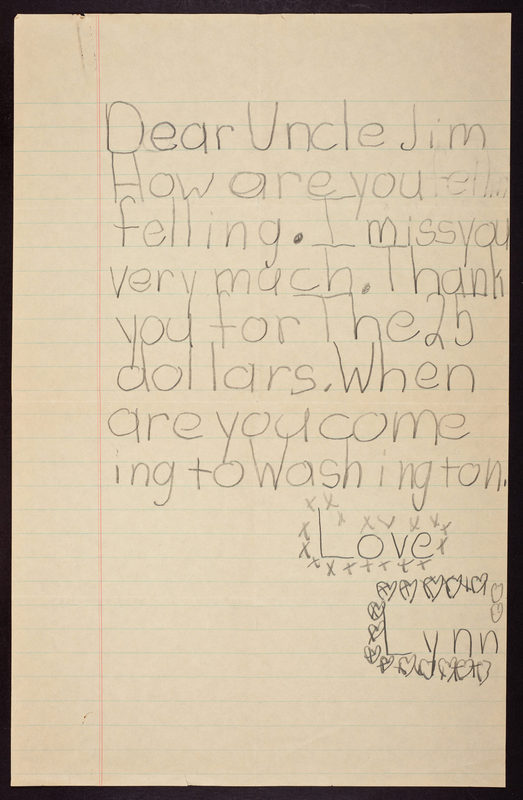 Dear Uncle Jim
How are you fell
felling. I miss you
very much. Thank
you for The 25
dollars. When
are you come
ing to Washington.
Love
Lynn